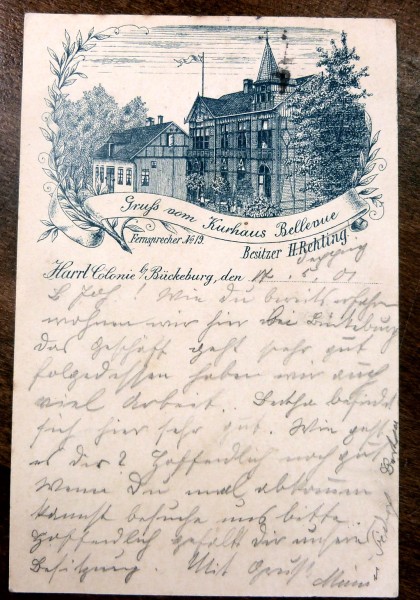 Gruß vom Kurhaus Bellevue
Fernsprecher No 19.
Besitzer H. Rehling
Harrl Colonie b/ Bückeburg, den 17. 5. 01
L. Joh. Wie du bereits erfahren
wohnen wir hier bei Bückeburg
das Geschäft geht sehr gut
folgedessen haben wir auch
viel Arbeit. befindet
sich hier sehr gut. Wie geht
es dir? Hoffentlich noch gut
Wenn Du mal abkommen
kannst besuche uns bitte.
Hoffentlich gefällt dir unsere
Besitzung. Mit Gruß